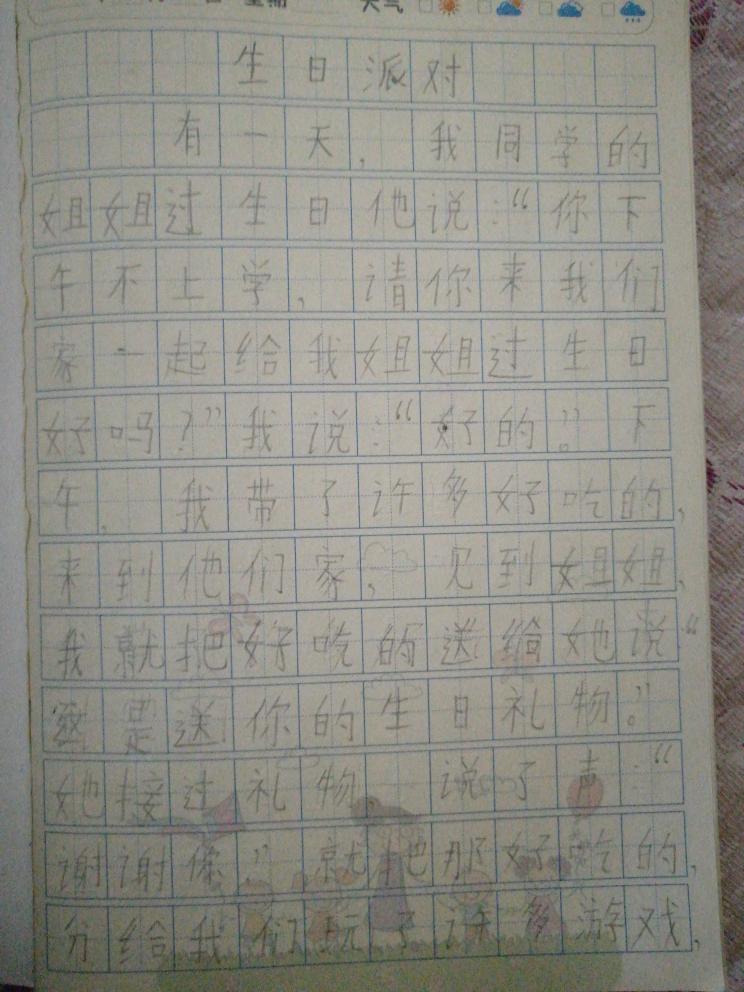 天气
生日派对
有一天，我同学的
姐姐过生日他说：“你下
午不上学，请你来我们
家一起给我姐姐过生日
好吗？”我说：“好的。”下
午，我带了许多好吃的，
来到他们家，见到姐姐，
我就把好吃的送给她说“
这是送你的生日礼物。”
她接过礼物 说了声：“
谢谢你。”就把那好吃的，
分给我们玩了许多游戏，